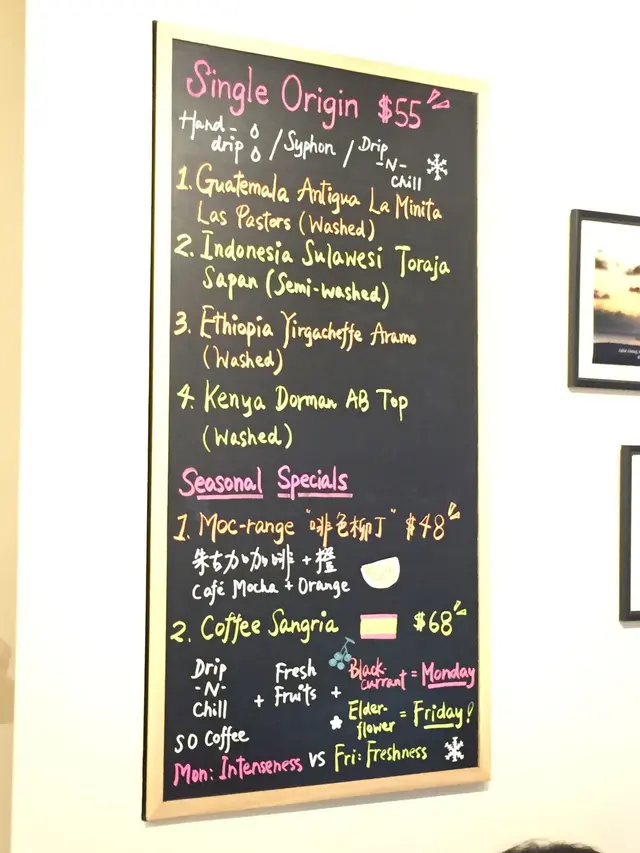 Single Origin $55
Hand-drip / Syphon / Drip -N- Chill
1. Guatemala Antigua La Minita
Las Pastors (Washed)
2. Indonesia Sulawesi Toraja
Sapan (Semi-washed)
3. Ethiopia Yirgacheffe Aramo
(Washed)
4. Kenya Dorman AB Top
(Washed)
Seasonal Specials
1. Moc-range "啡色柳丁" $48
朱古力咖啡 + 橙
Café Mocha + Orange
2. Coffee Sangria $68
Drip -N- Chill
SO Coffee
+ Fresh Fruits +
Black-currant = Monday
Elder-flower = Friday!
Mon: Intenseness vs Fri: Freshness